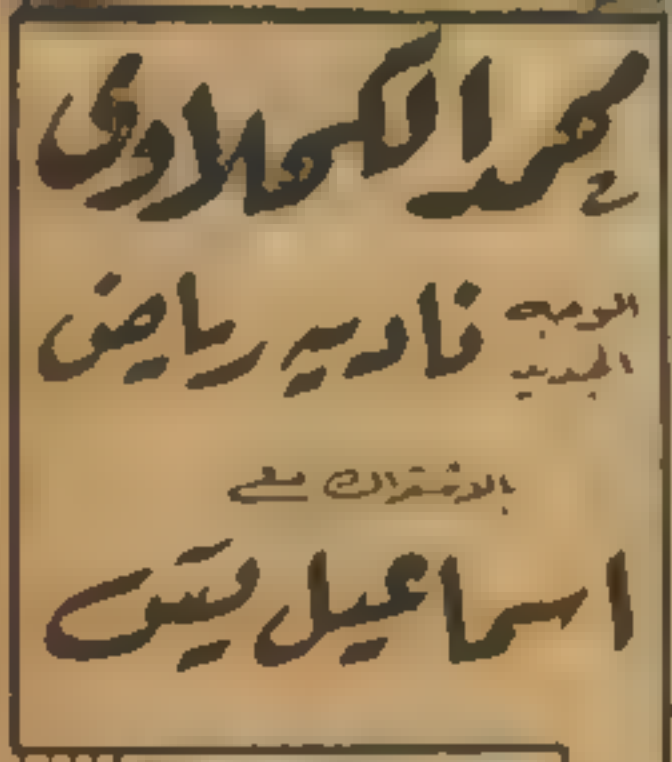 محمد الكحلاوى
الوجه
الجديد
نادية رياض
بالاشتراك مع
اسماعيل يس